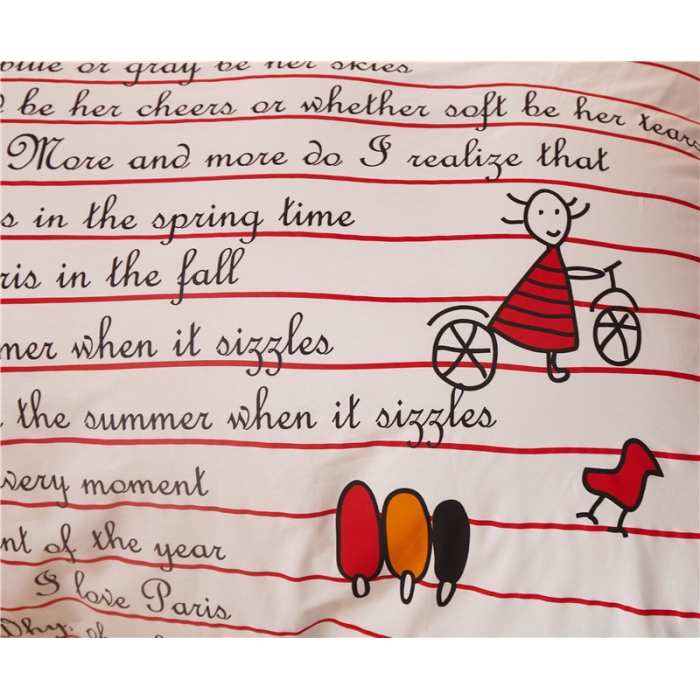 blue or gray be her skies
be her cheers or whether soft be her tears
More and more do I realize that
s in the spring time
ris in the fall
mer when it sizzles
the summer when it sizzles
very moment
nt of the year
I love Paris
Why, of